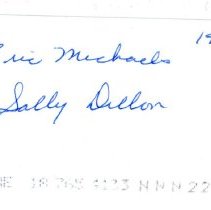 19
Eric Michaels
Sally Dillon
18 765 4133 N N N 22